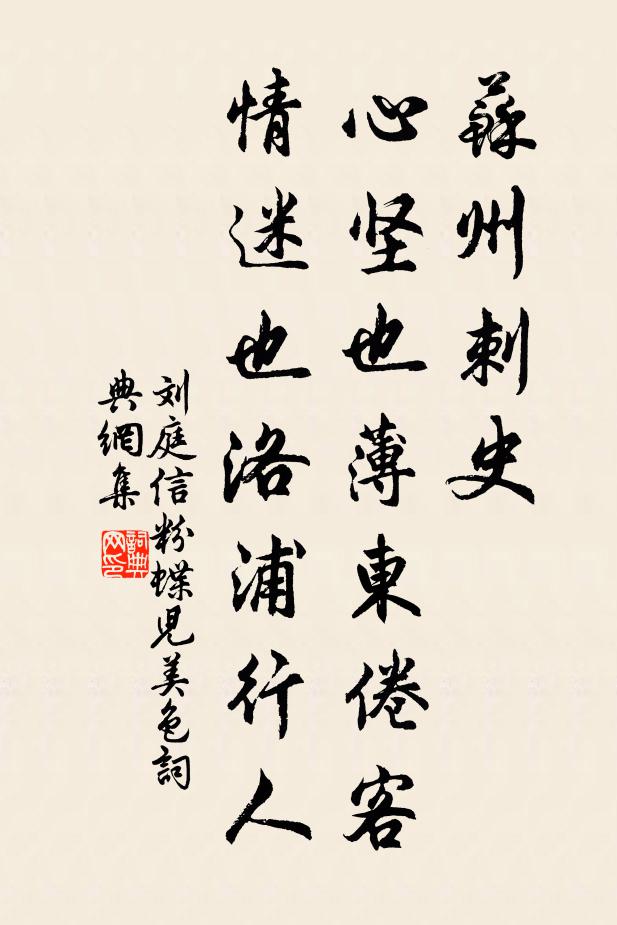 蘇州刺史
心坚也薄東倦客
情迷也洛浦行人
刘庭信粉蝶児美色詞
典網集
詞典
网印